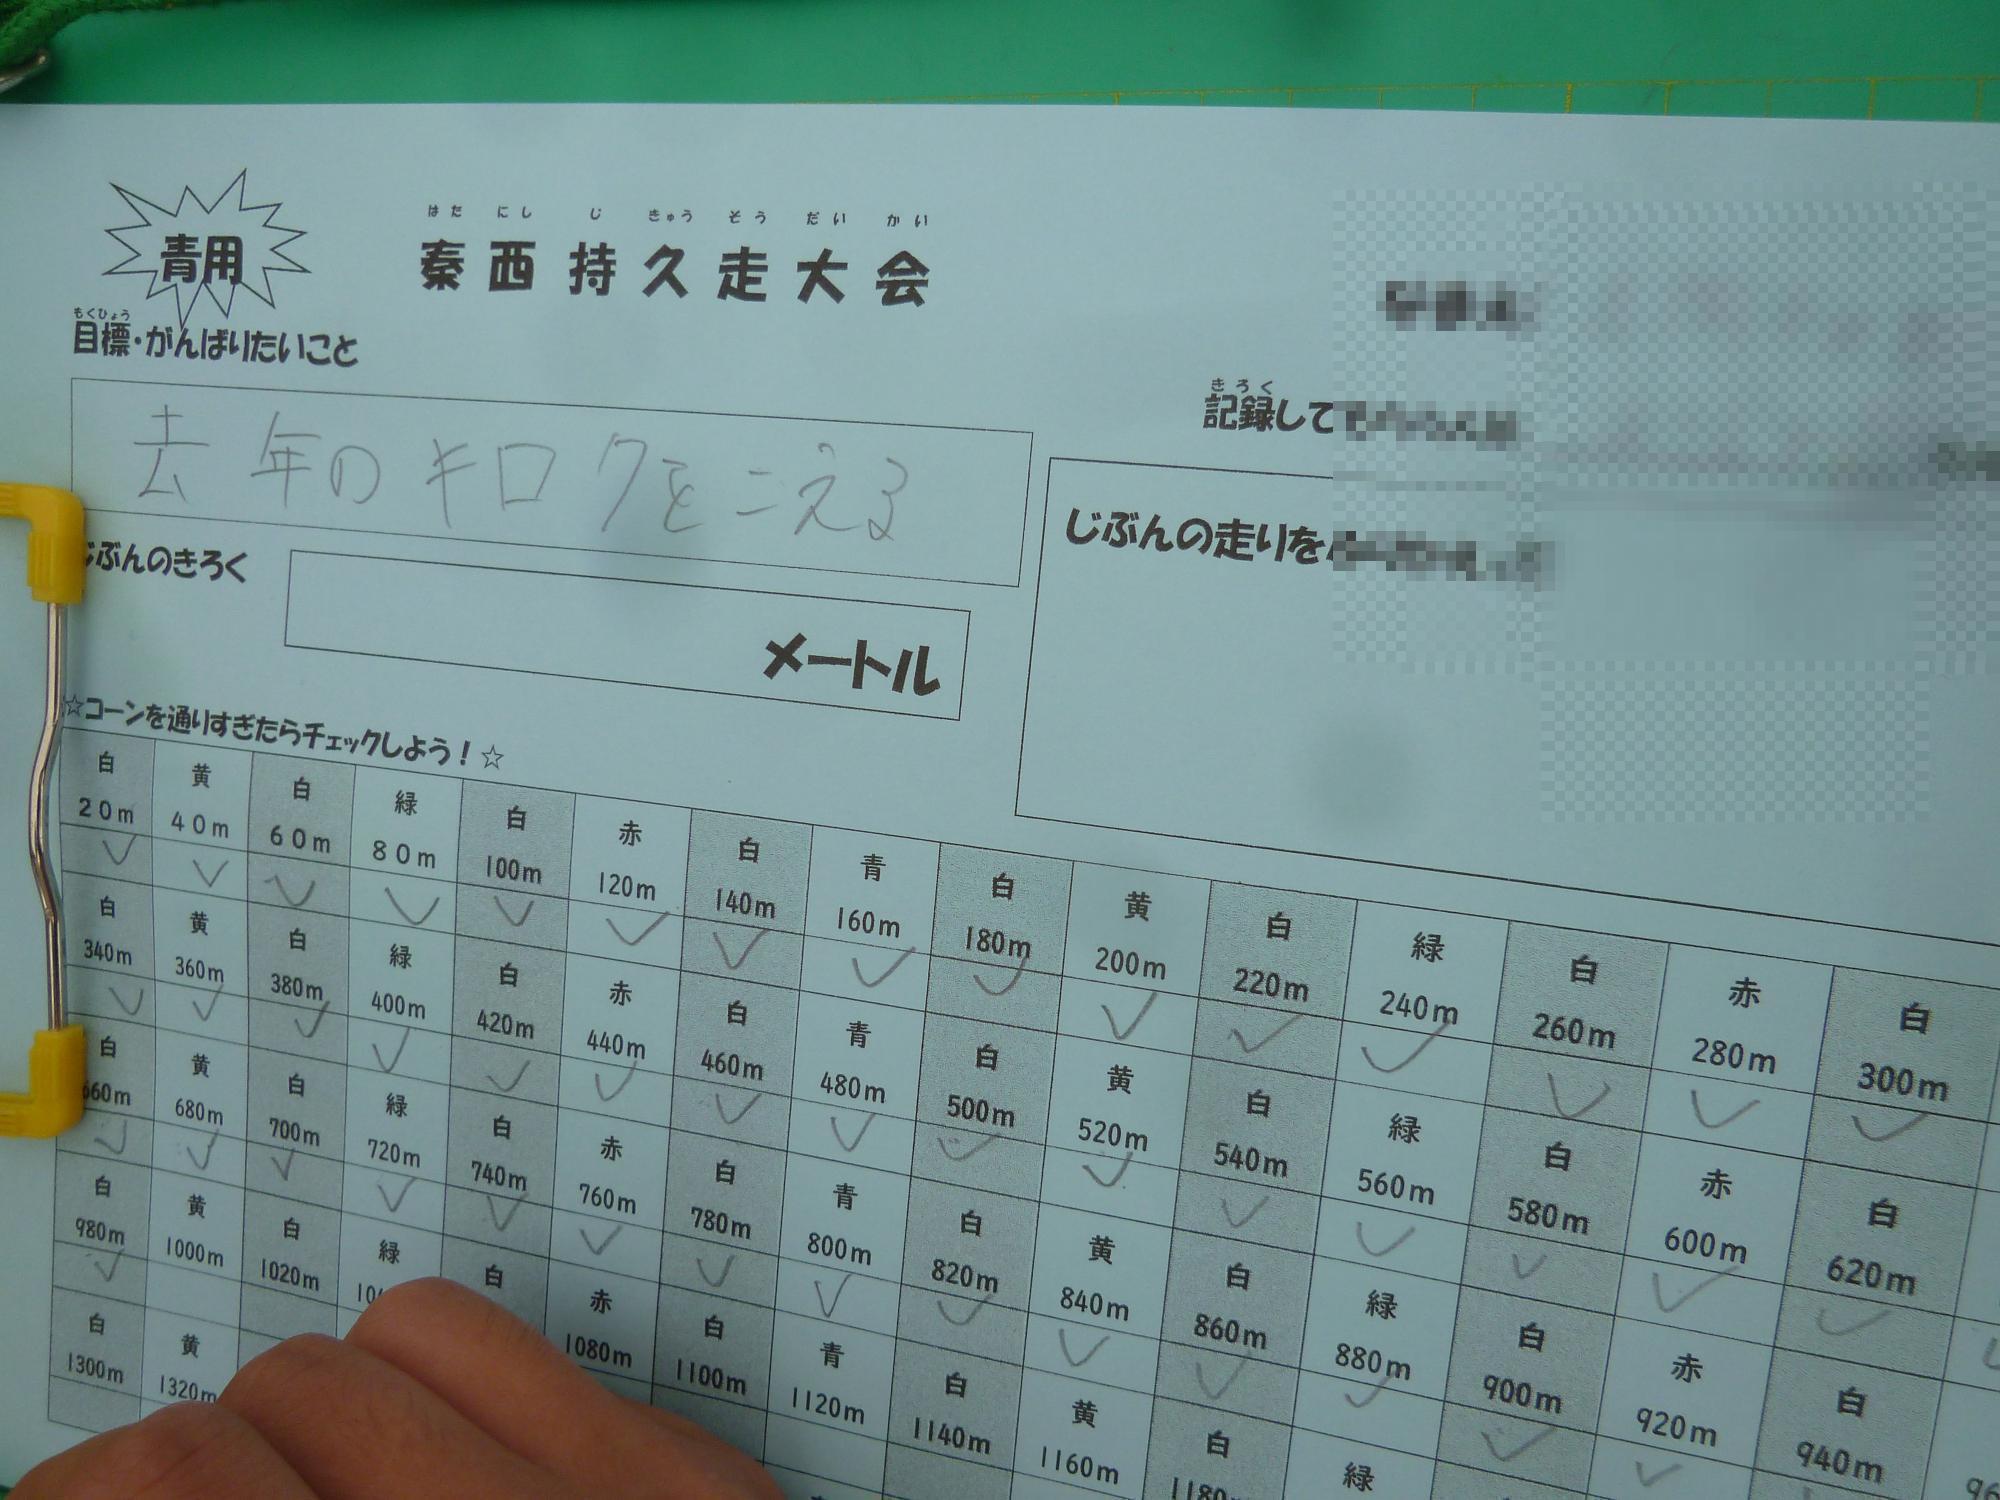 青用
はた にし じ きゅう そう だい かい
秦西持久走大会
もくひょう
目標・がんばりたいこと
去年のキロクをこえる
きろく
記録して
じぶんの走りを
じぶんのきろく
メートル
☆コーンを通りすぎたらチェックしよう！☆
白 黄 白 緑 白 赤 白 青 白 黄 白 緑 白 赤 白
20m 40m 60m 80m 100m 120m 140m 160m 180m 200m 220m 240m 260m 280m 300m
白 黄 白 緑 白 赤 白 青 白 黄 白 緑 白 赤 白
340m 360m 380m 400m 420m 440m 460m 480m 500m 520m 540m 560m 580m 600m 620m
白 黄 白 緑 白 赤 白 青 白 黄 白 緑 白 赤 白
660m 680m 700m 720m 740m 760m 780m 800m 820m 840m 860m 880m 900m 920m 940m
白 黄 白 緑 白 赤 白 青 白 黄 白 緑
980m 1000m 1020m 1080m 1100m 1120m 1140m 1160m
白 黄
1300m 1320m